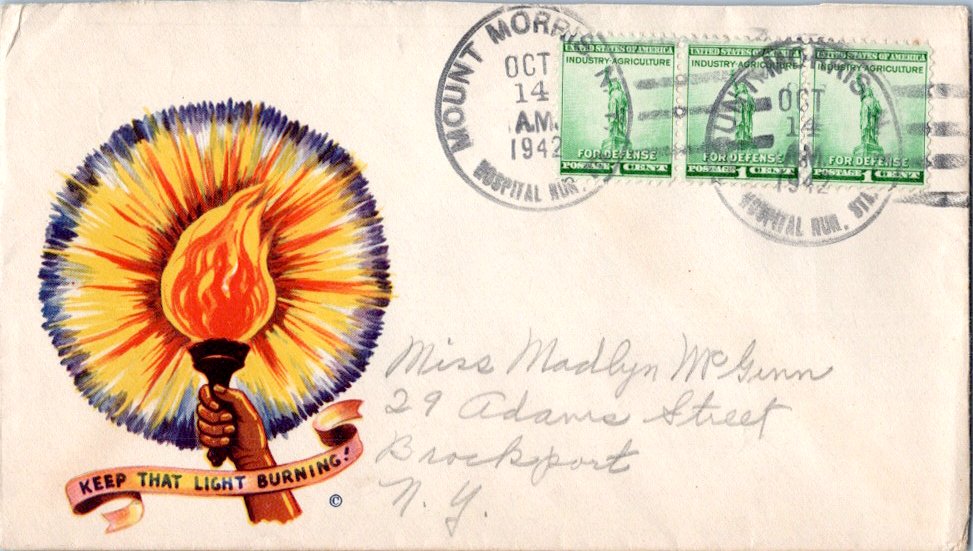 MOUNT MORRIS N
OCT
14
A.M.
1942
HOSPITAL RUR.
UNITED STATES OF AMERICA
INDUSTRY·AGRICULTURE
FOR DEFENSE
POSTAGE 1 CENT
UNITED STATES OF AMERICA
INDUSTRY·AGRICULTURE
FOR DEFENSE
POSTAGE 1 CENT
UNITED STATES OF AMERICA
INDUSTRY·AGRICULTURE
FOR DEFENSE
POSTAGE 1 CENT
OUNT MORRIS N
OCT
14
A.M.
1942
HOSPITAL RUR. STA.
Miss Madlyn McGinn
29 Adams Street
Brockport
N. Y.
KEEP THAT LIGHT BURNING!
©